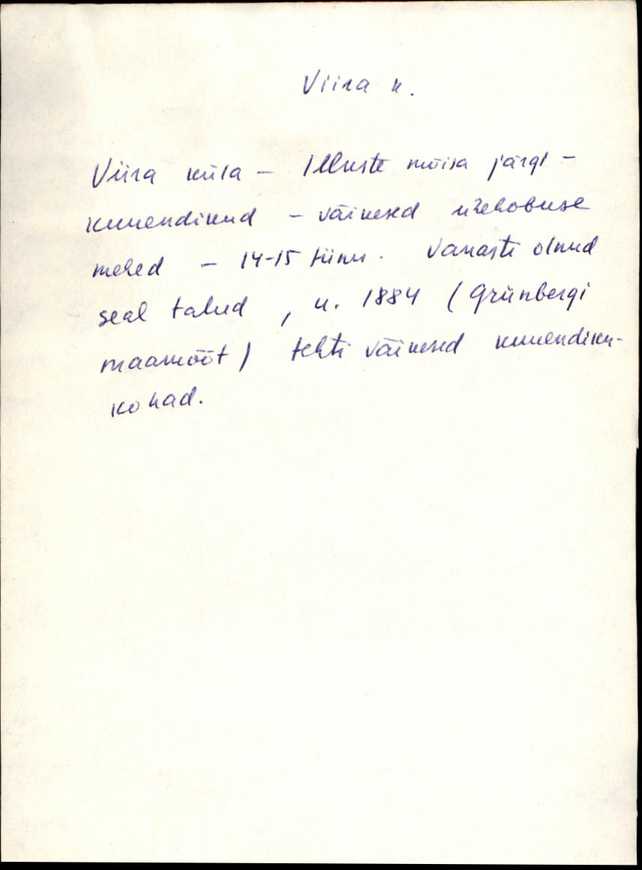 Viira k.
Viira küla – Illuste mõisa järgi –
kuuendikud – väikesed ühehobuse
mehed – 14-15 tiinu. Vanasti olnud
seal talud, u. 1884 (Grünbergi
maamõõt) tehti väikesed kuuendiku-
kohad.